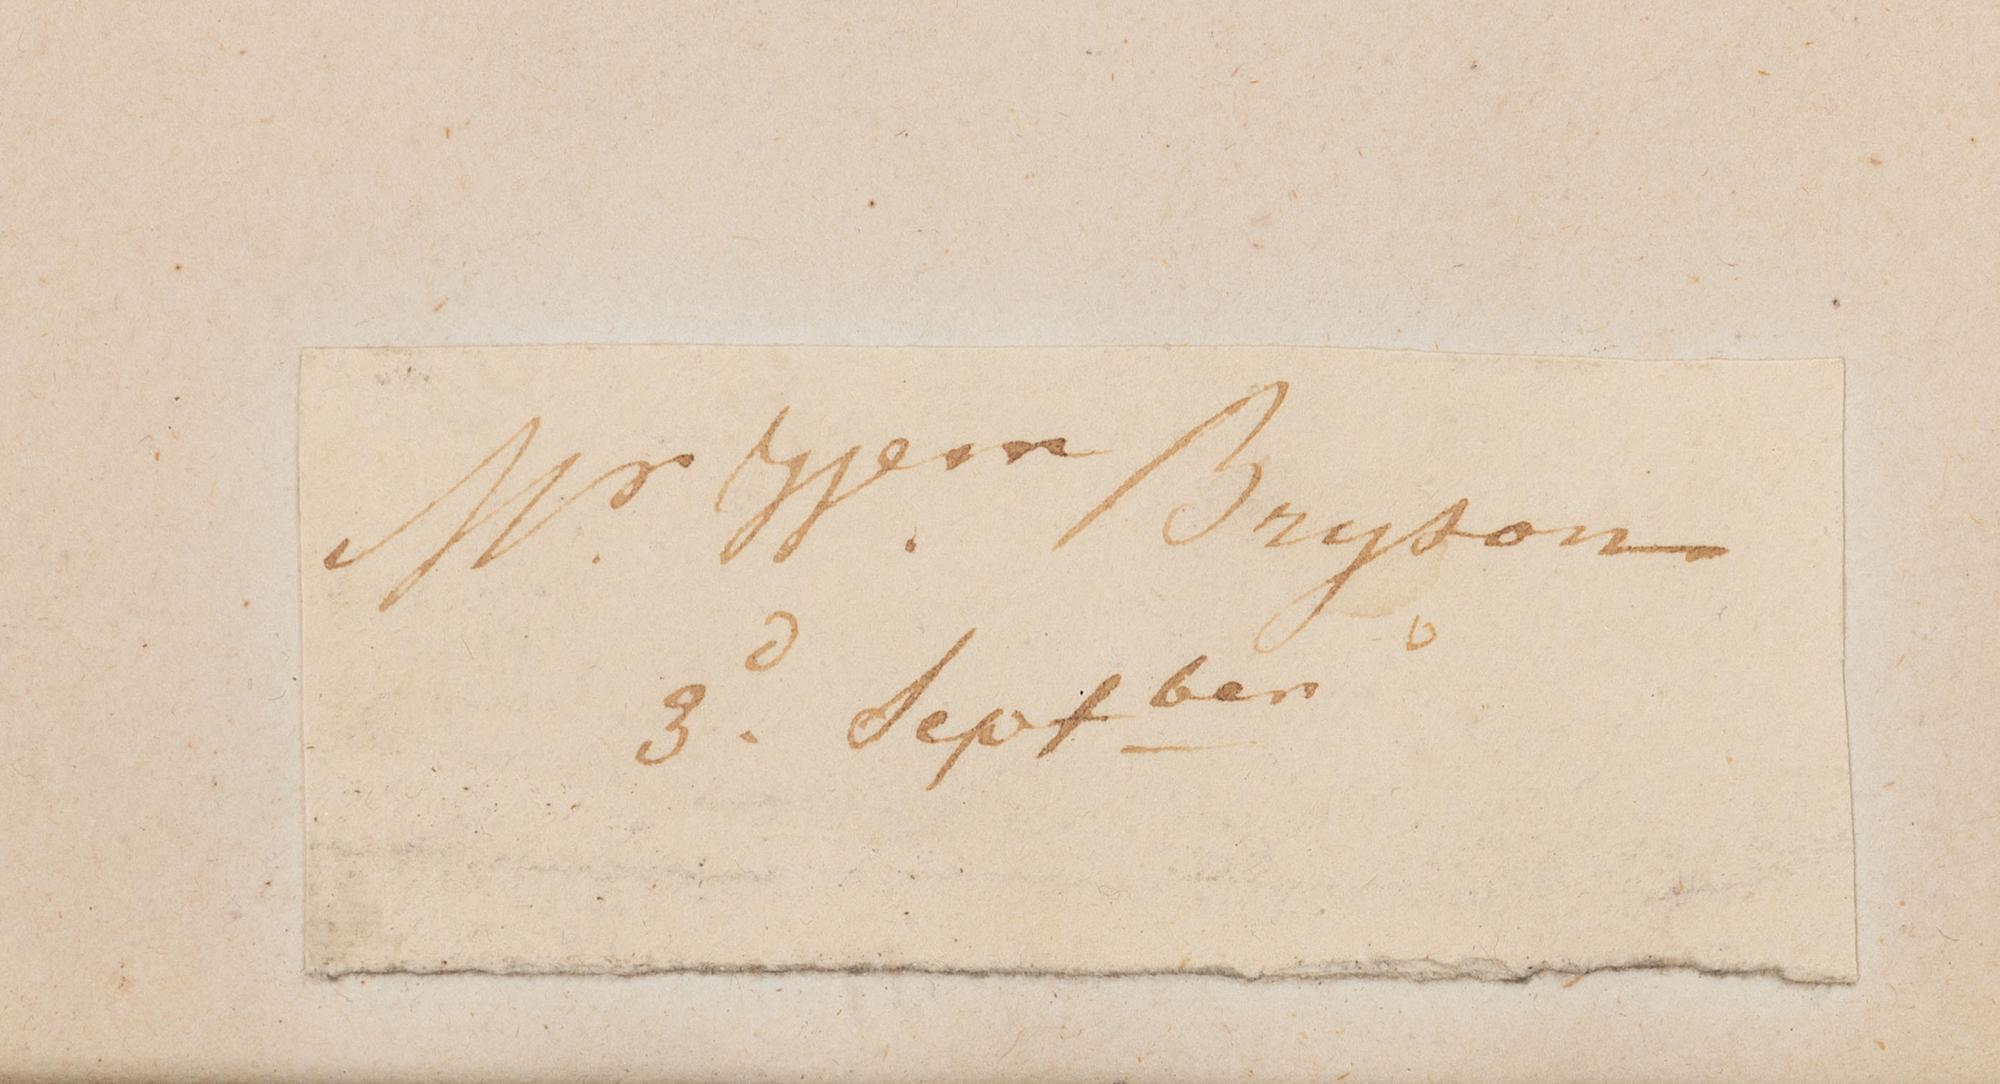 Mr. Wm. Bryson
3d. Septber